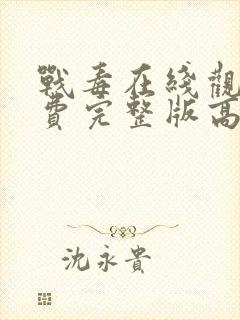 戰毒在綫觀
費完整版高
沈永貴